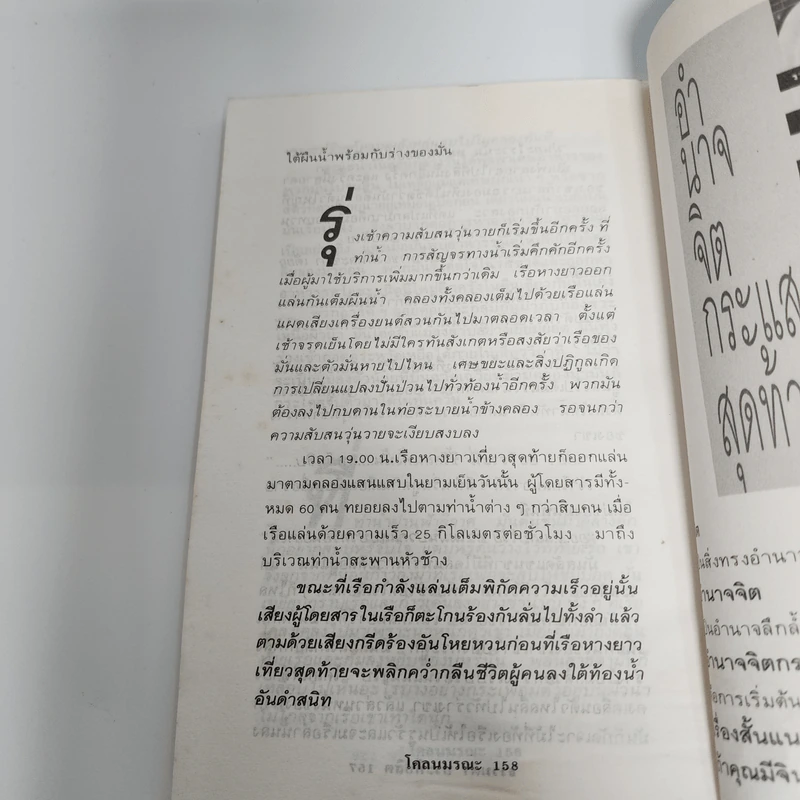 ใต้ผืนน้ำพร้อมกับร่างของมั่น
รุ่งเช้าความสับสนวุ่นวายก็เริ่มขึ้นอีกครั้ง ที่
ท่าน้ำ การสัญจรทางน้ำเริ่มคึกคักอีกครั้ง
เมื่อผู้มาใช้บริการเพิ่มมากขึ้นกว่าเดิม เรือหางยาวออก
แล่นกันเต็มผืนน้ำ คลองทั้งคลองเต็มไปด้วยเรือแล่น
แผดเสียงเครื่องยนต์สวนกันไปมาตลอดเวลา ตั้งแต่
เช้าจรดเย็นโดยไม่มีใครทันสังเกตหรือสงสัยว่าเรือของ
มั่นและตัวมั่นหายไปไหน เศษขยะและสิ่งปฏิกูลเกิด
การเปลี่ยนแปลงปั่นป่วนไปทั่วท้องน้ำอีกครั้ง พวกมัน
ต้องลงไปกบดานในท่อระบายน้ำข้างคลอง รอจนกว่า
ความสับสนวุ่นวายจะเงียบสงบลง
เวลา 19.00 น.เรือหางยาวเที่ยวสุดท้ายก็ออกแล่น
มาตามคลองแสนแสบในยามเย็นวันนั้น ผู้โดยสารมีทั้ง-
หมด 60 คน ทยอยลงไปตามท่าน้ำต่าง ๆ กว่าสิบคน เมื่อ
เรือแล่นด้วยความเร็ว 25 กิโลเมตรต่อชั่วโมง มาถึง
บริเวณท่าน้ำสะพานหัวช้าง
ขณะที่เรือกำลังแล่นเต็มพิกัดความเร็วอยู่นั้น
เสียงผู้โดยสารในเรือก็ตะโกนร้องกันลั่นไปทั้งลำ แล้ว
ตามด้วยเสียงกรีดร้องอันโหยหวนก่อนที่เรือหางยาว
เที่ยวสุดท้ายจะพลิกคว่ำกลืนชีวิตผู้คนลงใต้ท้องน้ำ
อันดำสนิท
โคลนมรณะ 158
อำ
นาจ
จิต
กระแส
สุดท้า
นสิ่งทรงอำนา
านาจจิต
นอำนาจลึกล้ำ
อำนาจจิตกร
อการเริ่มต้น
รื่องสั้นแน
ถ้าคุณมีจิน